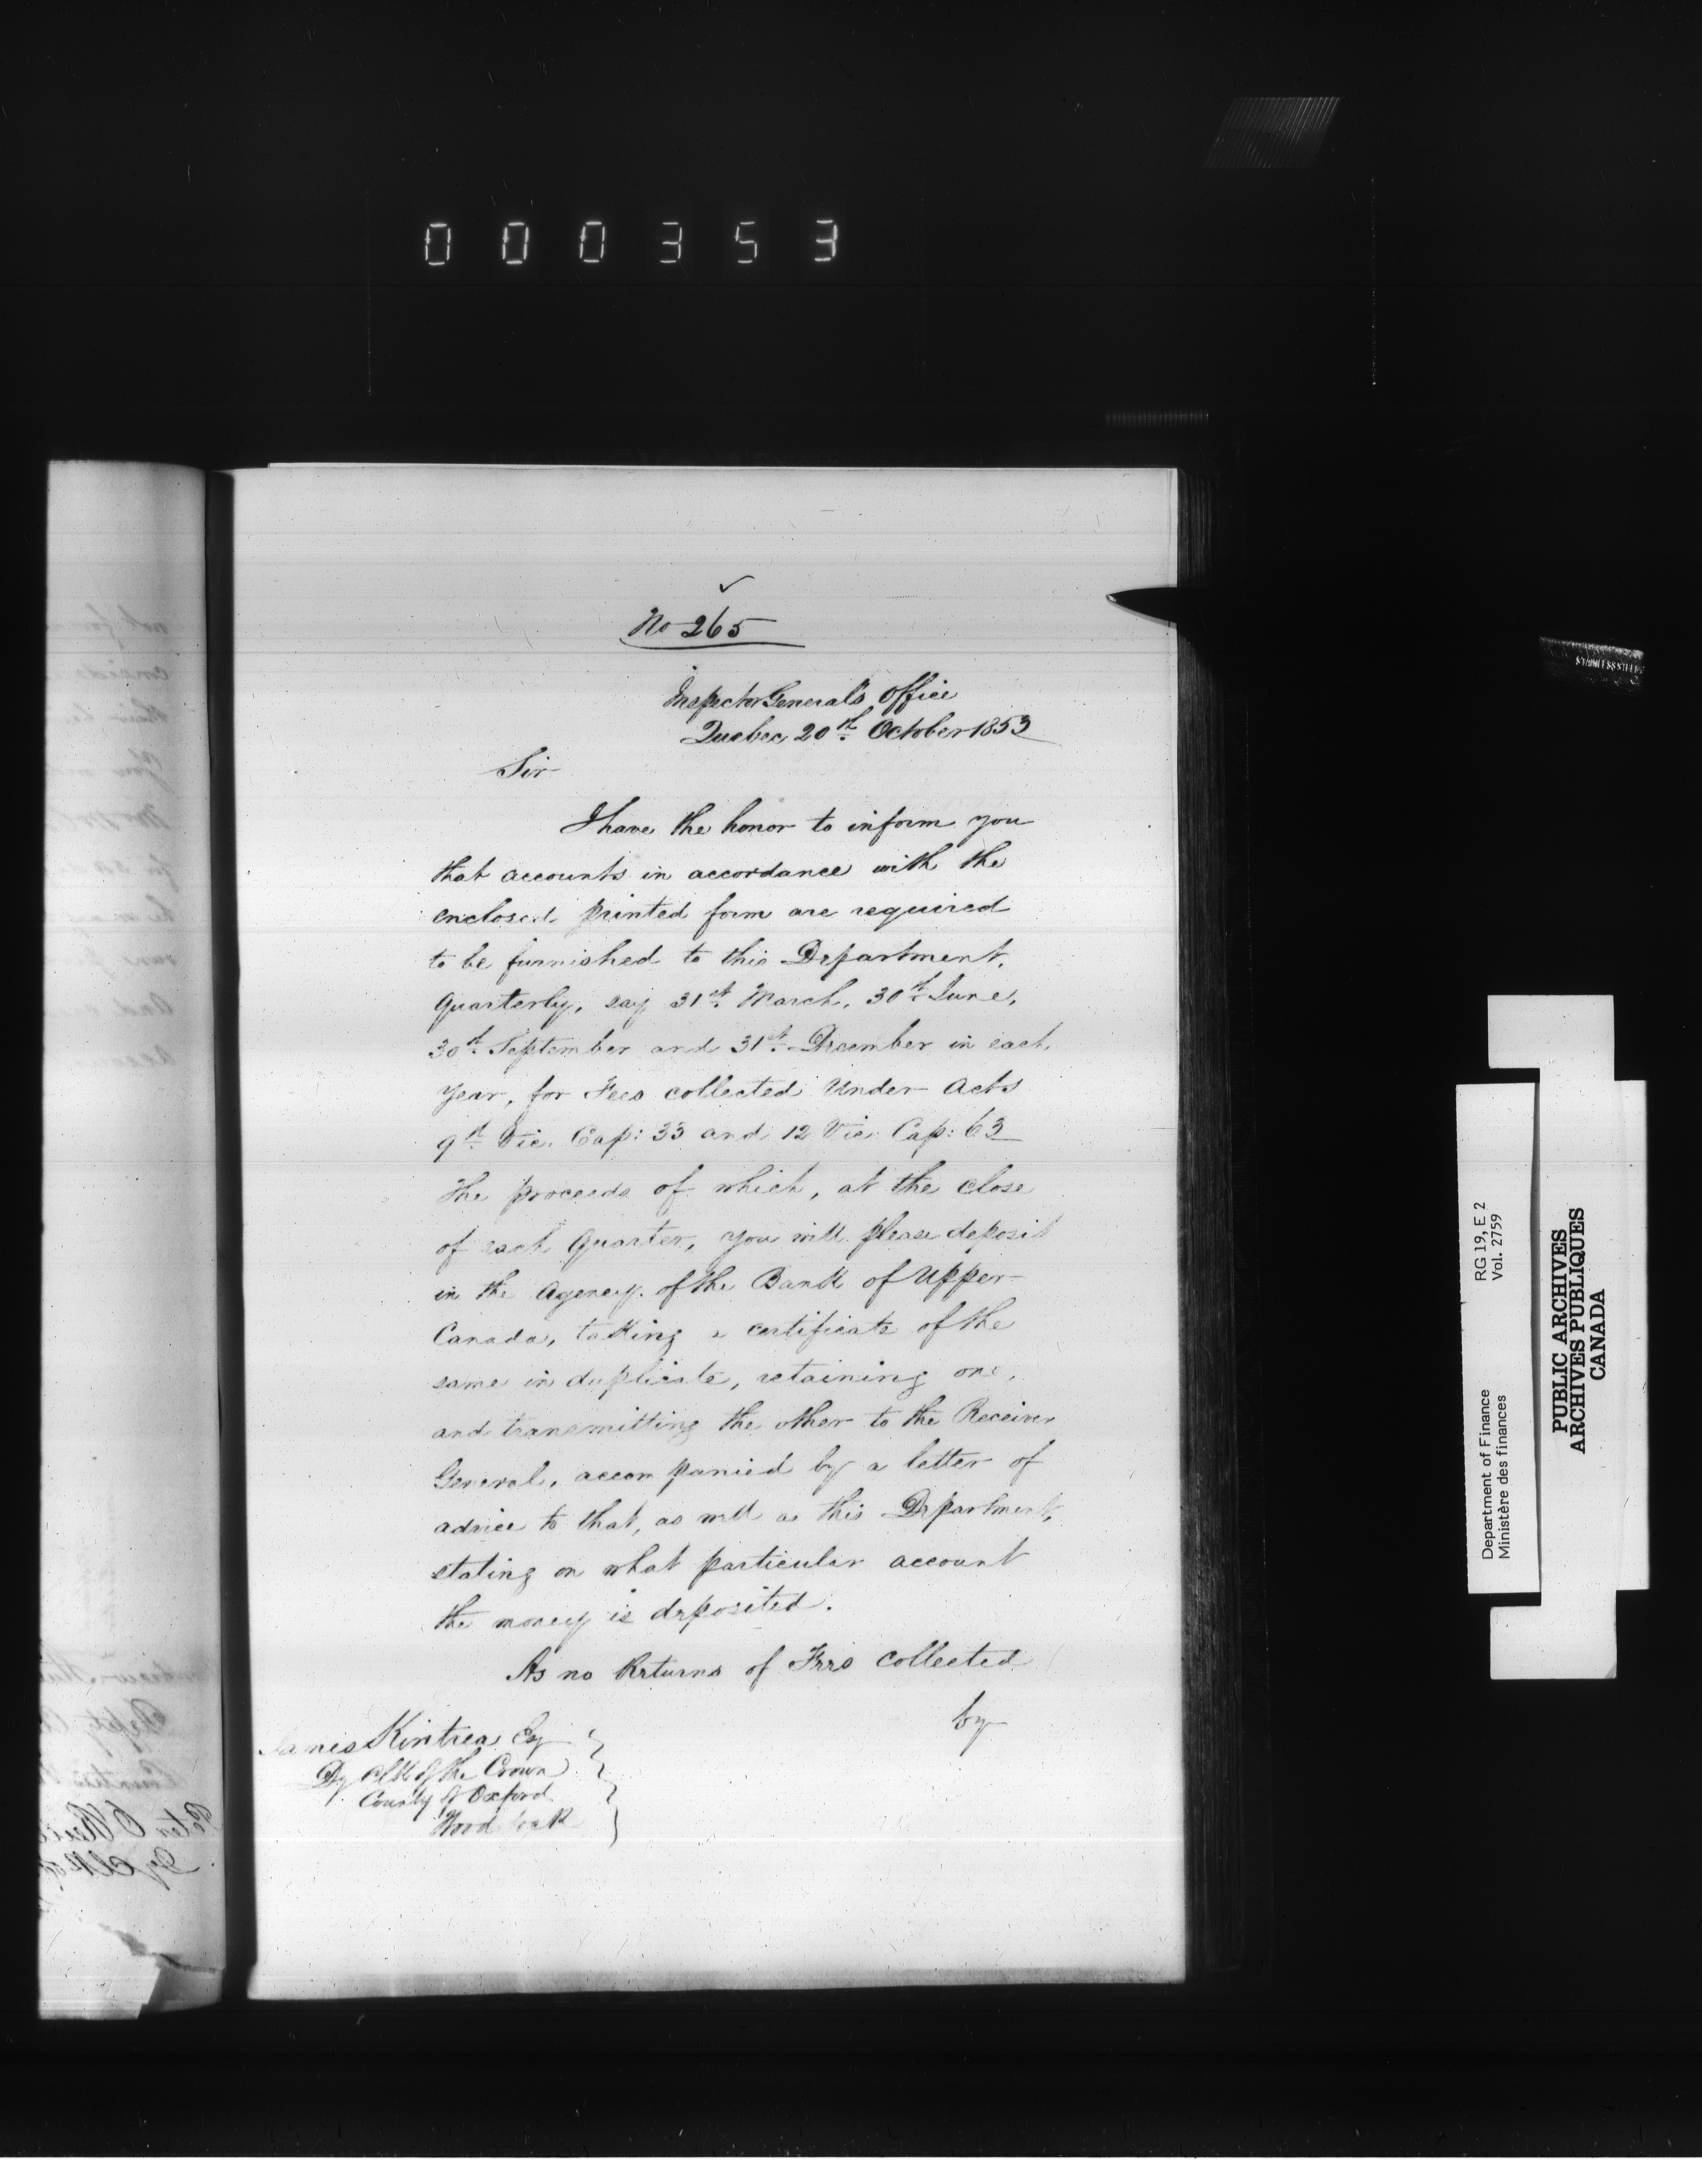 000353
No 265
Inspector General's Office
Quebec 20th. October 1853
Sir
I have the honor to inform you
that accounts in accordance with the
enclosed printed form are required
to be furnished to this Department,
Quarterly, say 31st. March, 30th. June,
30th. September and 31st. December in each
year, for Fees collected Under Acts
9th. Vic. Cap: 33 and 12 Vic. Cap: 63
The proceeds of which, at the close
of each Quarter, you will please deposit
in the Agency. of the Bank of Upper
Canada, taking a certificate of the
same in duplicate, retaining one,
and transmitting the other to the Receiver
General, accompanied by a letter of
advice to that, as well as this Department,
stating on what particular account
the money is deposited.
As no Returns of Fees collected
by
James Kintrea Esq
Dy Clk of the Crown
County of Oxford
Woodstock
Department of Finance RG 19, E 2
Ministère des finances Vol. 2759
PUBLIC ARCHIVES
ARCHIVES PUBLIQUES
CANADA